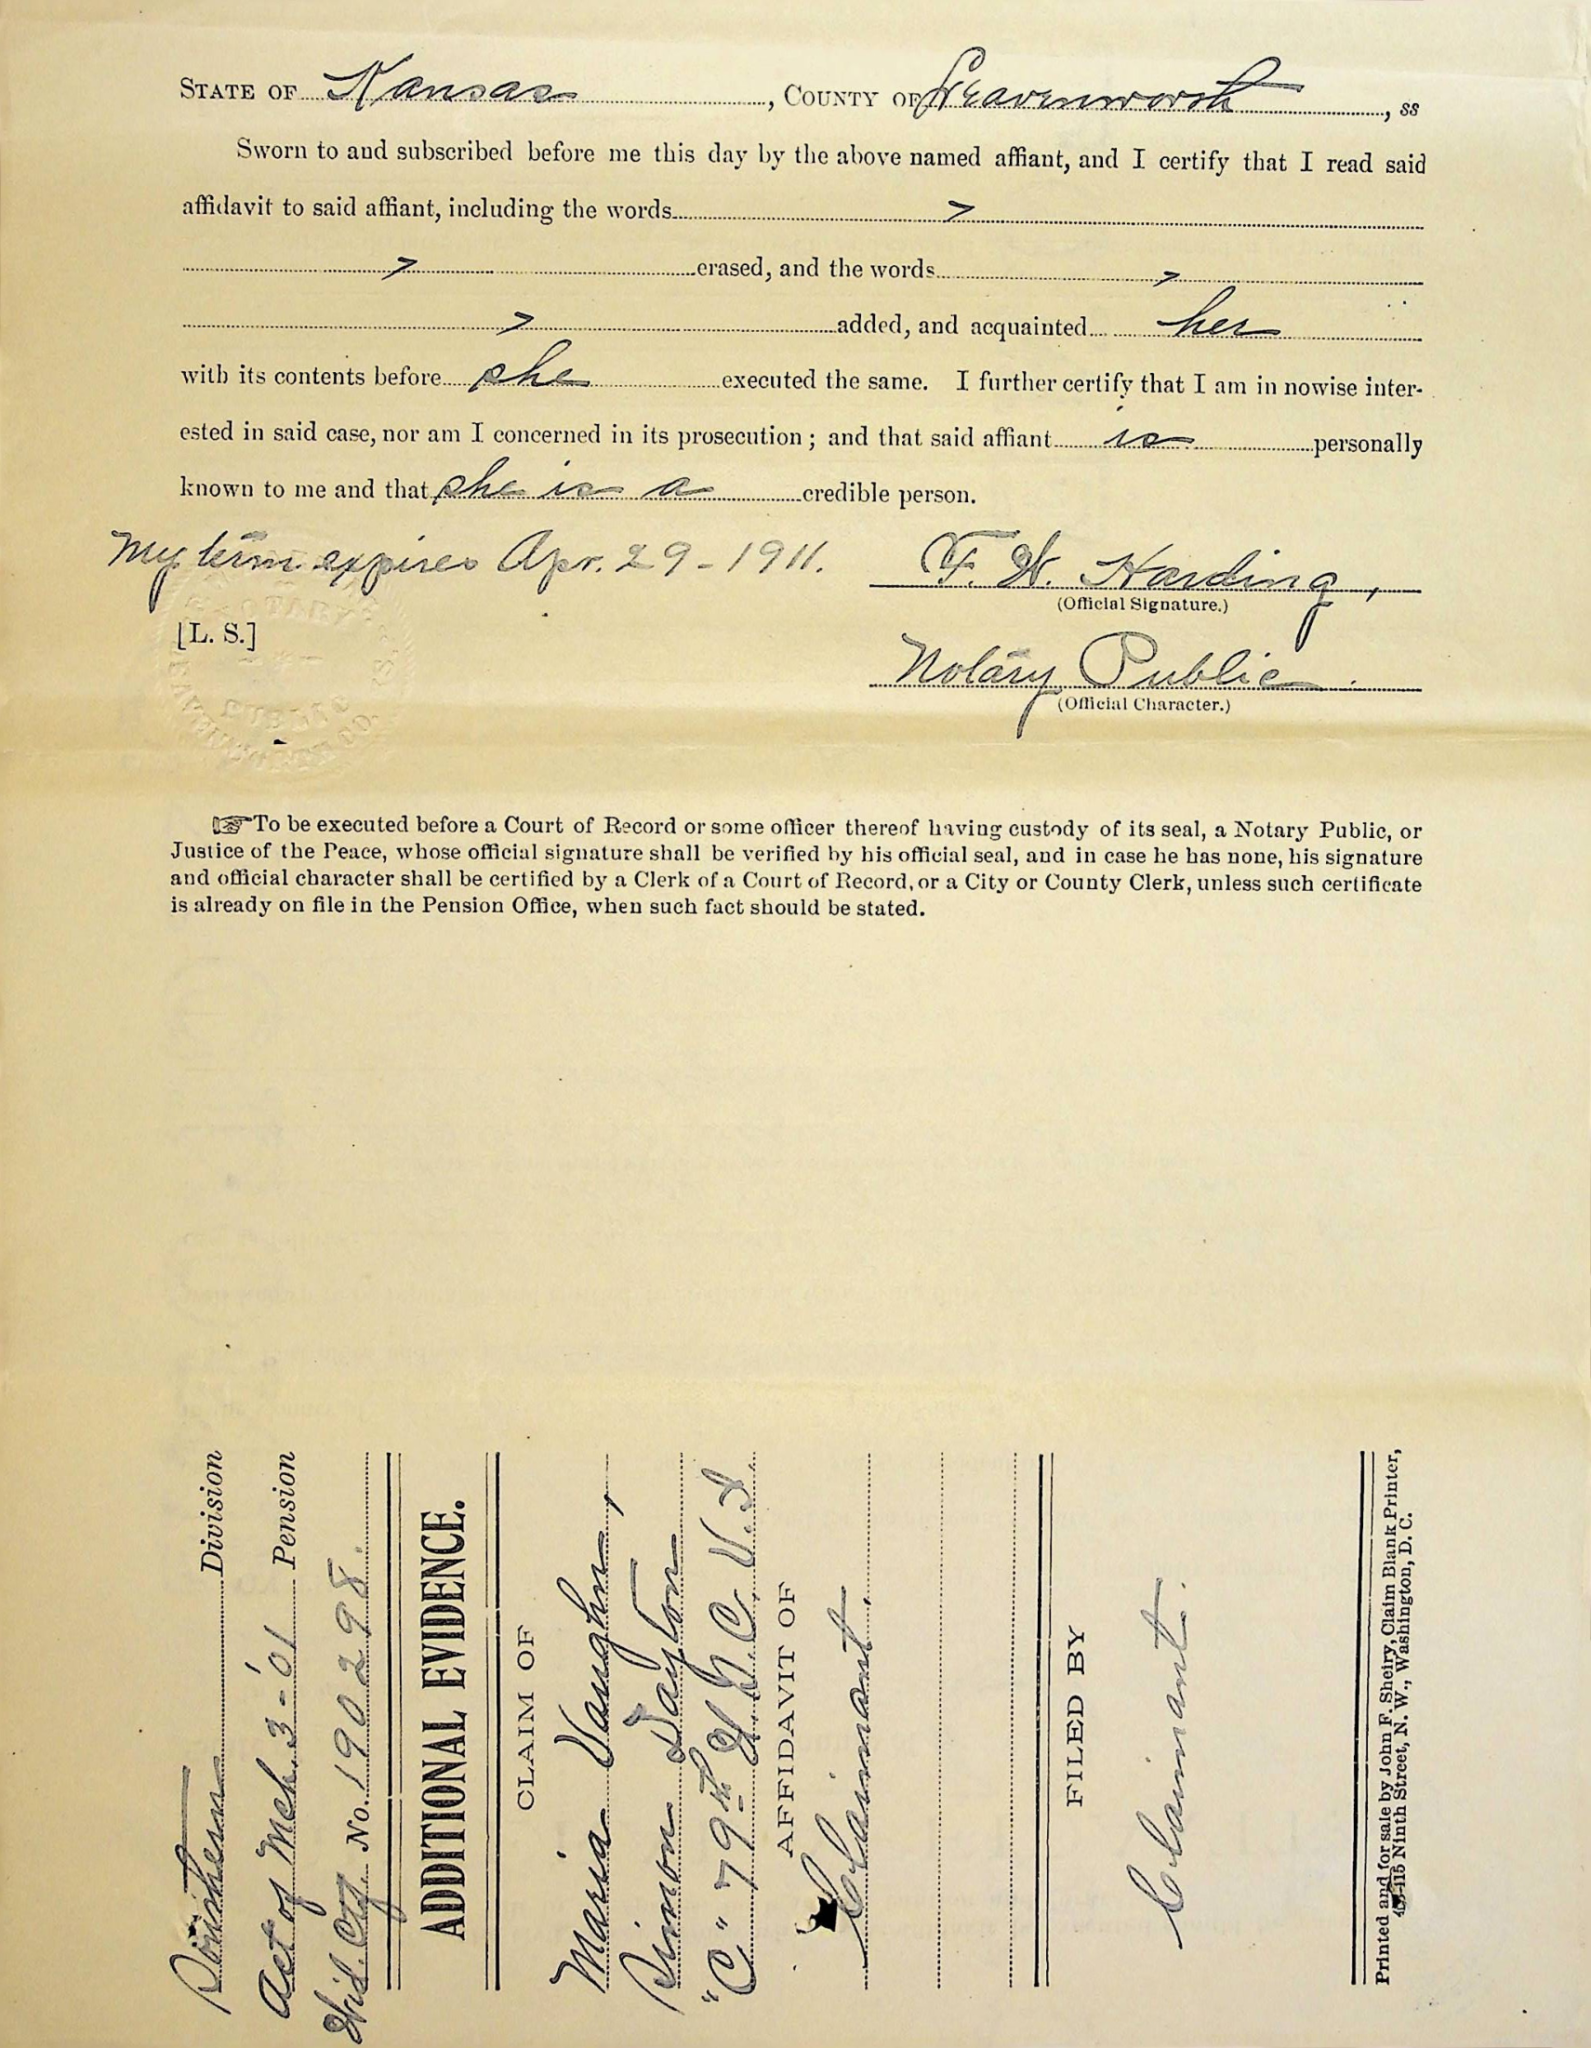 STATE OF Kansas, COUNTY OF Leavenworth, ss
Sworn to and subscribed before me this day by the above named affiant, and I certify that I read said
affidavit to said affiant, including the words
erased, and the words
added, and acquainted her
with its contents before she executed the same. I further certify that I am in nowise inter-
ested in said case, nor am I concerned in its prosecution; and that said affiant is personally
known to me and that she is a credible person.
My term expires Apr. 29-1911.
F. W. Harding,
(Official Signature.)
[L. S.]
NOTARY
PUBLIC
LEAVENWORTH CO. KS.
Notary Public
(Official Character.)
☞To be executed before a Court of Record or some officer thereof having custody of its seal, a Notary Public, or
Justice of the Peace, whose official signature shall be verified by his official seal, and in case he has none, his signature
and official character shall be certified by a Clerk of a Court of Record, or a City or County Clerk, unless such certificate
is already on file in the Pension Office, when such fact should be stated.
Southern Division
Act of Mch. 3-'01 Pension
Wid. Ctf. No. 190298.
ADDITIONAL EVIDENCE.
CLAIM OF
Maria Vaughn,
Simon Dayton
"C" 79th U.S.C.V.I.
AFFIDAVIT OF
Claimant.
FILED BY
Claimant.
Printed and for sale by John F. Sheiry, Claim Blank Printer,
115 Ninth Street, N. W., Washington, D. C.